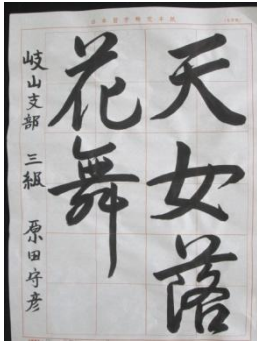 天女落
花舞
岐山支部 三級 原田守彦